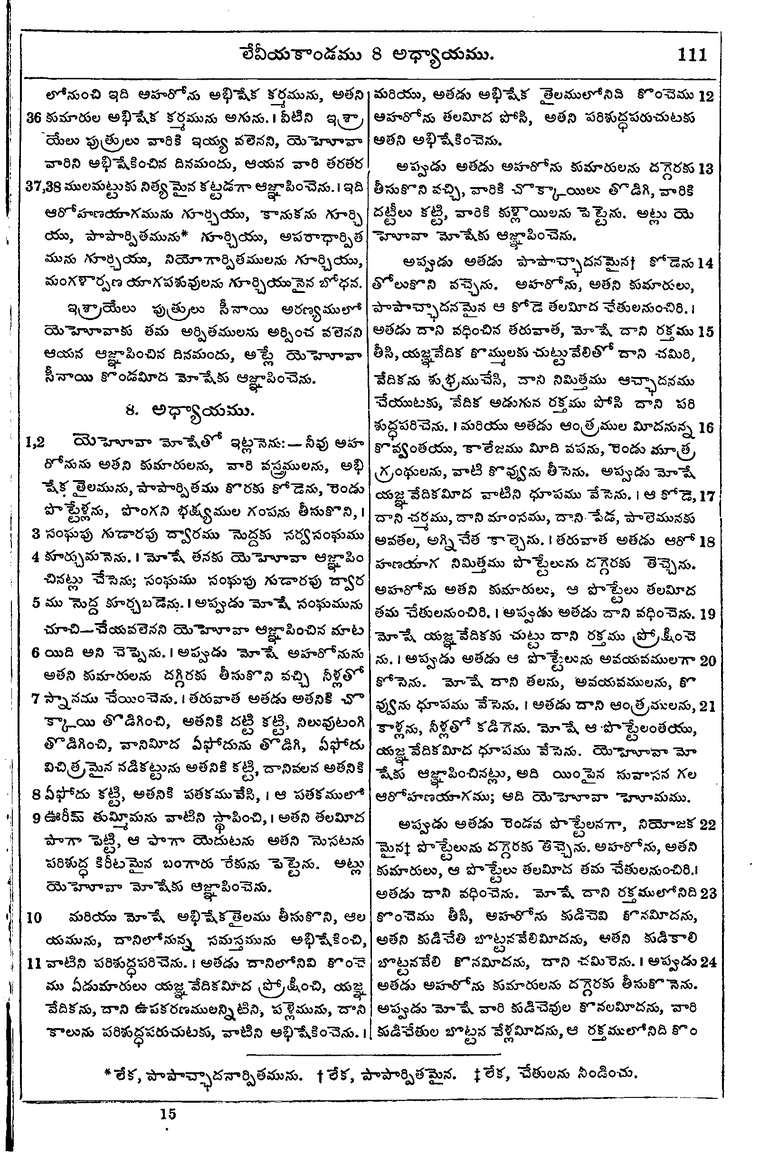 లేవీయకాండము 8 అధ్యాయము. 111
లోనుంచి ఇది ఆహరోను అభిషేక కర్మమును, అతని
36 కుమారుల అభిషేక కర్మమును అగును. । వీటిని ఇశ్రా
యేలు పుత్రులు వారికి ఇయ్య వలెనని, యెహోవా
వారిని అభిషేకించిన దినమందు, ఆయన వారి తరతర
37,38 ములమట్టుకు నిత్యమైన కట్టడగా ఆజ్ఞాపించెను. । ఇది
ఆరోహణయాగమును గూర్చియు, కానుకను గూర్చి
యు, పాపార్పితమును* గూర్చియు, అపరాధార్పిత
మును గూర్చియు, నియోగార్పితములను గూర్చియు,
మంగళార్పణ యాగపశువులను గూర్చియునైన బోధన.
ఇశ్రాయేలు పుత్రులు సీనాయి అరణ్యములో
యెహోవాకు తమ అర్పితములను అర్పించ వలెనని
ఆయన ఆజ్ఞాపించిన దినమందు, అట్లే యెహోవా
సీనాయి కొండమీద మోషేకు ఆజ్ఞాపించెను.
8. అధ్యాయము.
1,2 యెహోవా మోషేతో ఇట్లనెను:— నీవు అహ
రోనును అతని కుమారులను, వారి వస్త్రములను, అభి
షేక తైలమును, పాపార్పితము కొరకు కోడెను, రెండు
పొట్టేళ్లను, పొంగని భక్ష్యముల గంపను తీసుకొని, ।
3 సంఘపు గుడారపు ద్వారము మెద్దకు సర్వసంఘము
4 కూర్చుమనెను. । మోషే తనకు యెహోవా ఆజ్ఞాపిం
చినట్లు చేసెను; సంఘము సంఘపు గుడారపు ద్వార
5 ము మెద్ద కూర్చబడెను. । అప్పుడు మోషే సంఘమును
చూచి—చేయవలెనని యెహోవా ఆజ్ఞాపించిన మాట
6 యిది అని చెప్పెను. । అప్పుడు మోషే అహరోనును
అతని కుమారులను దగ్గిరకు తీసుకొని వచ్చి నీళ్లతో
7 స్నానము చేయించెను. । తరువాత అతడు అతనికి చొ
క్కాయి తొడిగించి, అతనికి దట్టి కట్టి, నిలువుటంగి
తొడిగించి, వానిమీద ఏఫోదును తొడిగి, ఏఫోదు
విచిత్రమైన నడికట్టును అతనికి కట్టి, దానివలన అతనికి
8 ఏఫోదు కట్టి, అతనికి పతకమువేసి, । ఆ పతకములో
9 ఊరీమ్ తుమ్మీమను వాటిని స్థాపించి, । అతని తలమీద
పాగా పెట్టి, ఆ పాగా యెదుటను అతని నుసటను
పరిశుద్ధ కిరీటమైన బంగారు రేకును పెట్టెను. అట్లు
యెహోవా మోషేకు ఆజ్ఞాపించెను.
10 మరియు మోషే అభిషేకతైలము తీసుకొని, ఆల
యమును, దానిలోనున్న సమస్తమును అభిషేకించి,
11 వాటిని పరిశుద్ధపరిచెను. । అతడు దానిలోనివి కొంచె
ము ఏడుమారులు యజ్ఞవేదికమీద ప్రోక్షించి, యజ్ఞ
వేదికను, దాని ఉపకరణములన్నిటిని, పళ్లెమును, దాని
కాలును పరిశుద్ధపరుచుటకు, వాటిని అభిషేకించెను. ।
మరియు, అతడు అభిషేక తైలములోనిది కొంచెము 12
ఆహరోను తలమీద పోసి, అతని పరిశుద్ధపరుచుటకు
అతని అభిషేకించెను.
అప్పుడు అతడు అహరోను కుమారులను దగ్గెరకు 13
తీసుకొని వచ్చి, వారికి చొక్కాయిలు తొడిగి, వారికి
దట్టీలు కట్టి, వారికి కుళ్లాయిలను పెట్టెను. అట్లు యె
హోవా మోషేకు ఆజ్ఞాపించెను.
అప్పుడు అతడు పాపాచ్ఛాదనమైన† కోడెను 14
తోలుకొని వచ్చెను. అహరోను, అతని కుమారులు,
పాపాచ్ఛాదనమైన ఆ కోడె తలమీద చేతులనుంచిరి. ।
అతడు దాని వధించిన తరువాత, మోషే దాని రక్తము 15
తీసి, యజ్ఞవేదిక కొమ్ములకు చుట్టు వేలితో దాని చమిరి,
వేదికను శుభ్రముచేసి, దాని నిమిత్తము ఆచ్ఛాదనము
చేయుటకు, వేదిక అడుగున రక్తము పోసి దాని పరి
శుద్ధపరిచెను. । మరియు అతడు ఆంత్రముల మీదనున్న 16
కొవ్వంతయు, కాలేజము మీది వపను, రెండు మూత్ర
గ్రంథులను, వాటి కొవ్వును తీసెను. అప్పుడు మోషే
యజ్ఞవేదికమీద వాటిని ధూపము వేసెను. । ఆ కోడె, 17
దాని చర్మము, దాని మాంసము, దాని పేడ, పాలెమునకు
అవతల, అగ్నిచేత కాల్చెను. । తరువాత అతడు ఆరో 18
హణయాగ నిమిత్తము పొట్టేలును దగ్గెరకు తెచ్చెను.
అహరోను అతని కుమారులు, ఆ పొట్టేలు తలమీద
తమ చేతులనుంచిరి. । అప్పుడు అతడు దాని వధించెను. 19
మోషే యజ్ఞవేదికకు చుట్టు దాని రక్తము ప్రోక్షించె
ను. । అప్పుడు అతడు ఆ పొట్టేలును అవయవములగా 20
కోసెను. మోషే దాని తలను, అవయవములను, కొ
వ్వును ధూపము వేసెను. । అతడు దాని ఆంత్రములను, 21
కాళ్లను, నీళ్లతో కడిగెను. మోషే ఆ పొట్టేలంతయు,
యజ్ఞవేదికమీద ధూపము వేసెను. యెహోవా మో
షేకు ఆజ్ఞాపించినట్లు, అది యింపైన సువాసన గల
ఆరోహణయాగము; అది యెహోవా హోమము.
అప్పుడు అతడు రెండవ పొట్టేలనగా, నియోజక 22
మైన‡ పొట్టేలును దగ్గెరకు తెచ్చెను. అహరోను, అతని
కుమారులు, ఆ పొట్టేలు తలమీద తమ చేతులనుంచిరి. ।
అతడు దాని వధించెను. మోషే దాని రక్తములోనిది 23
కొంచెము తీసి, అహరోను కుడిచెవి కొనమీదను,
అతని కుడిచేతి బొట్టనవేలిమీదను, అతని కుడికాలి
బొట్టనవేలి కొనమీదను, దాని చమిరెను. । అప్పుడు 24
అతడు అహరోను కుమారులను దగ్గెరకు తీసుకొనెను.
అప్పుడు మోషే వారి కుడిచెవుల కొనలమీదను, వారి
కుడిచేతుల బొట్టన వేళ్లమీదను, ఆ రక్తములోనిది కొం
*లేక, పాపాచ్ఛాదనార్పితమును. †లేక, పాపార్పితమైన. ‡లేక, చేతులను నిండించు.
15